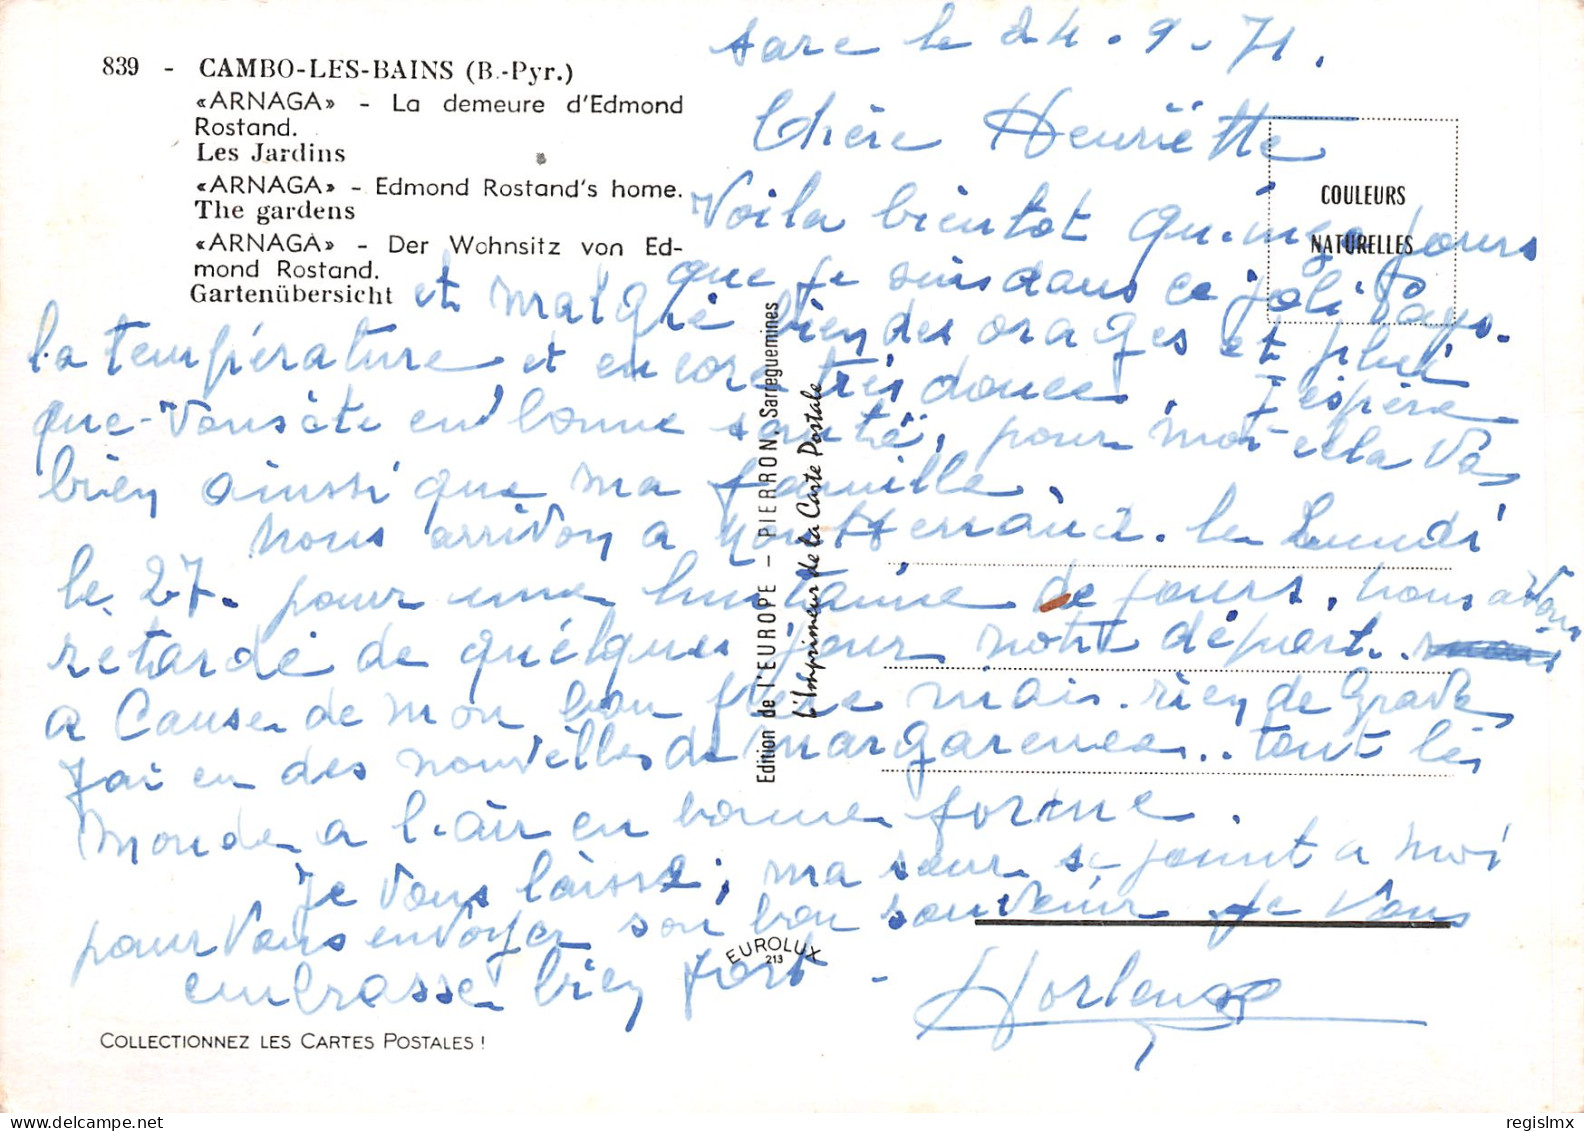 839 - CAMBO-LES-BAINS (B.-Pyr.)
«ARNAGA» - La demeure d'Edmond
Rostand.
Les Jardins
«ARNAGA» - Edmond Rostand's home.
The gardens
«ARNAGA» - Der Wohnsitz von Ed-
mond Rostand.
Gartenübersicht
COULEURS
NATURELLES
Sare le 24.9-71.
Chère Henriëtte
Voila bientot quinze jours
que je suis dans ce joli Pays.
et malgré bien des orages et pluie
la température et encore très douce. J'espère
que-vous ète en bonne santé, pour moi cella va
bien ainsi que ma famille.
nous arrivon a le Lundi
le 27. pour une huitaine de jours, nous avons
retardé de quélques jour notre départ.
a Cause de mon bau frère mais. rien de Grave
J'ai eu des nouvélles de ... tout lés
Monde a l'air en bonne forme.
Je vous laisse, ma sœur se joint a moi
pour vous envoyer son bon souvenir je vous
embrasse bien fort -
Hortense
Edition de l'EUROPE - PIERRON, Sarreguemines
L'Imprimeur de la Carte Postale
EUROLUX
213
COLLECTIONNEZ LES CARTES POSTALES !
regislmx
delcampe.net